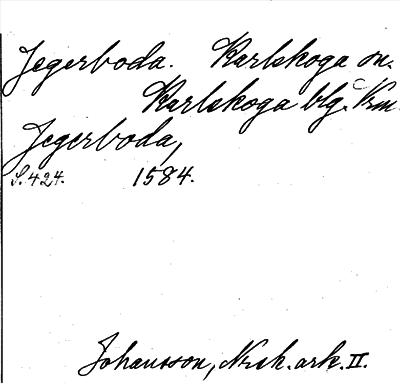 Jegerboda. Karlskoga sn.
Karlskoga blg. Vrm.
Jegerboda,
S. 424. 1584.
Johansson, Norsk. ark. II.